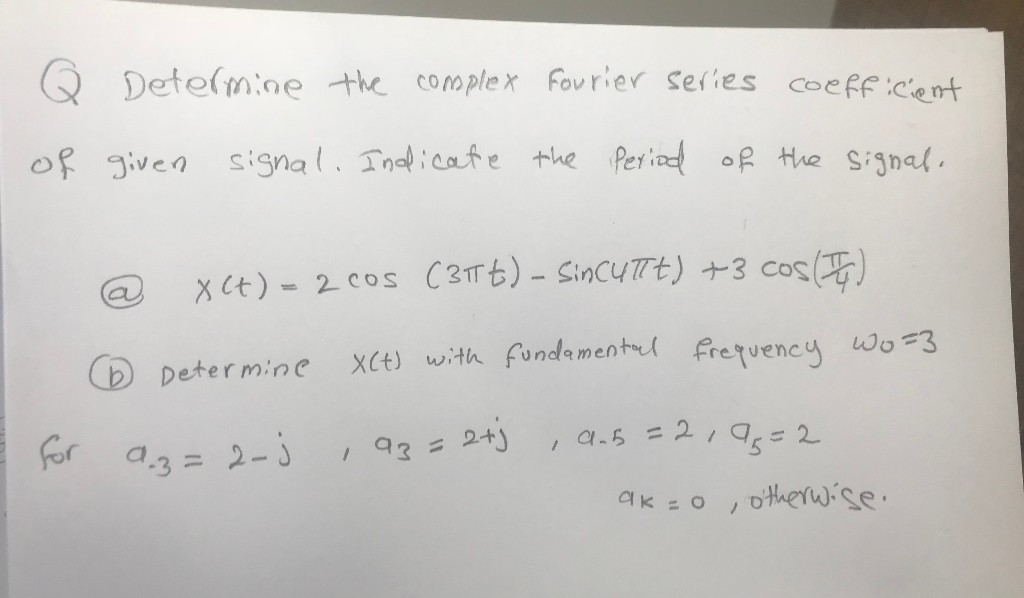 Q Determine the complex Fourier series coefficient
of given signal. Indicate the Period of the signal.
ⓐ x(t) = 2 cos (3πt) - sin(4πt) + 3 cos(π/4)
ⓑ Determine x(t) with fundamental frequency ω₀=3
for a₋₃ = 2-j , a₃ = 2+j , a₋₅ = 2 , a₅ = 2
aₖ = 0 , otherwise.